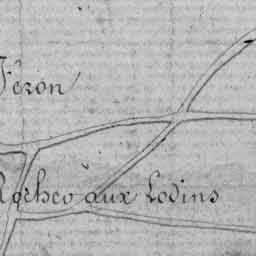 Féron
Roches aux Lodins